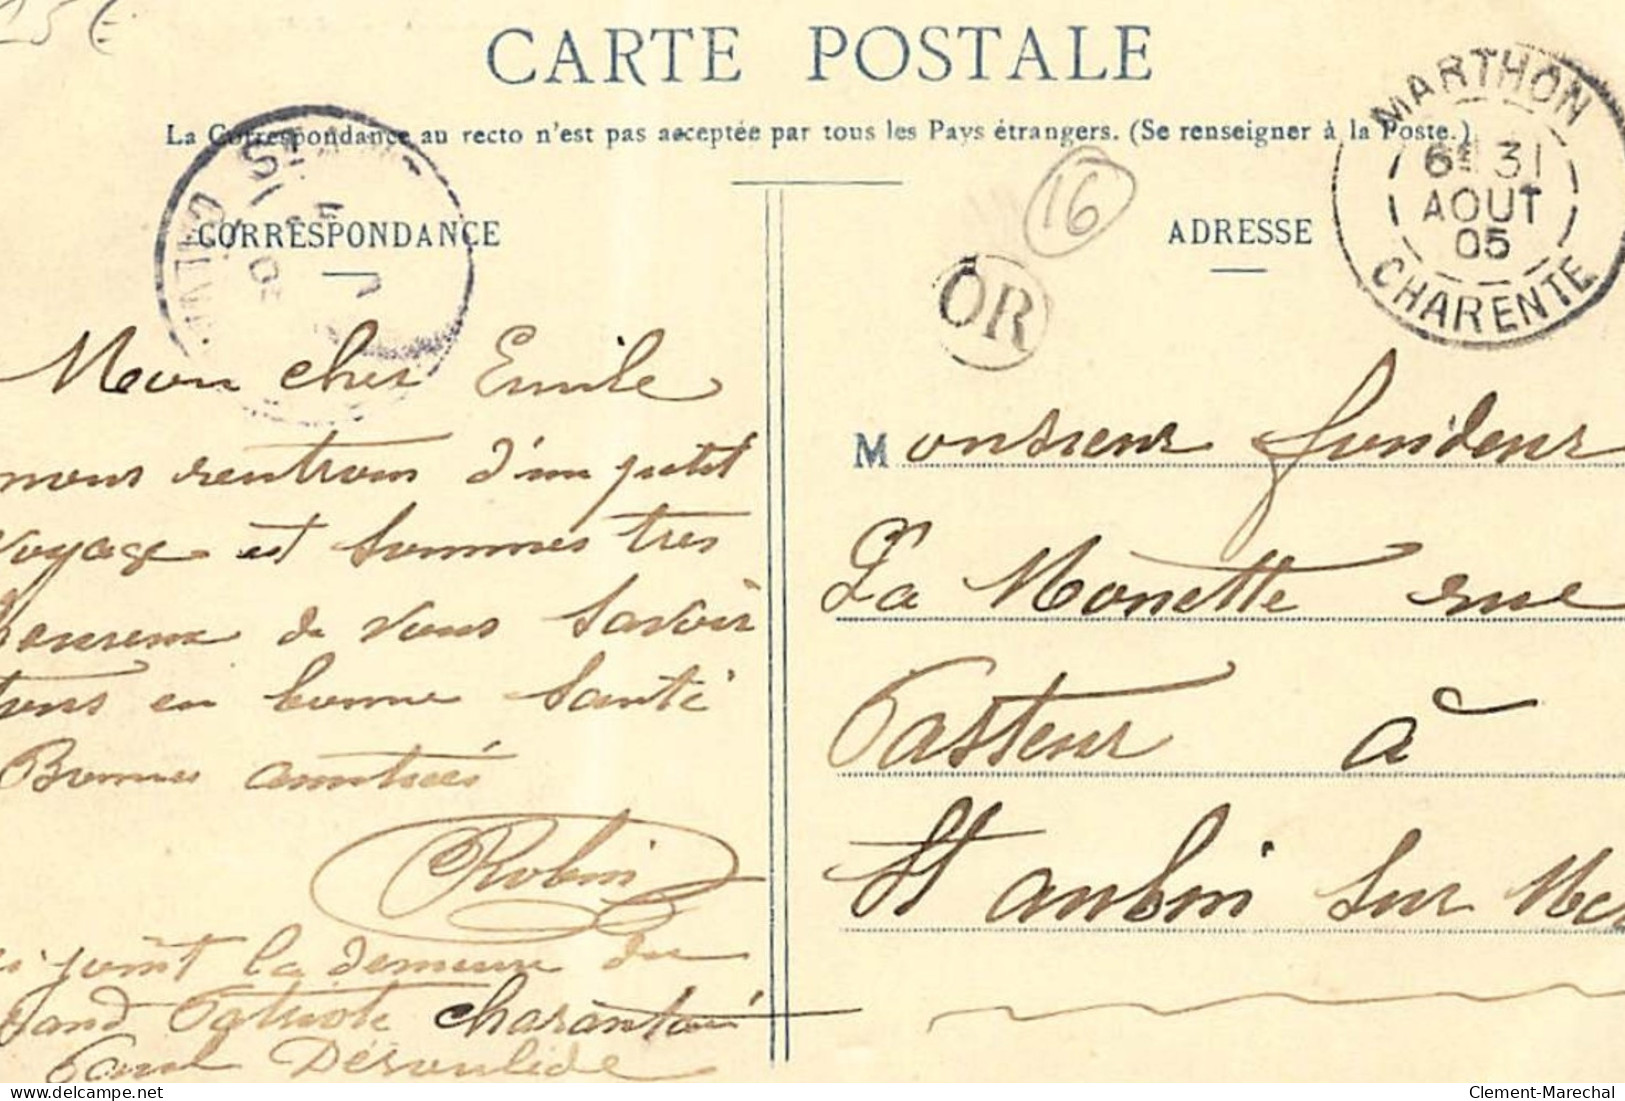 CARTE POSTALE
La Correspondance au recto n'est pas acceptée par tous les Pays étrangers. (Se renseigner à la Poste.)
CORRESPONDANCE
Mon cher Emile
nous rentrons d'un petit
voyage et sommes tres
heureux de vous savoir
tous en bonne santé
Bonnes amitiés
Robin
ci joint la demeure du
grand Patriote charantais
Paul Déroulède
16
OR
ADRESSE
MARTHON
6E 31
AOUT
05
CHARENTE
Monsieur
La Monette rue
Pasteur à
St aubin sur Mer
Clement-Marechal